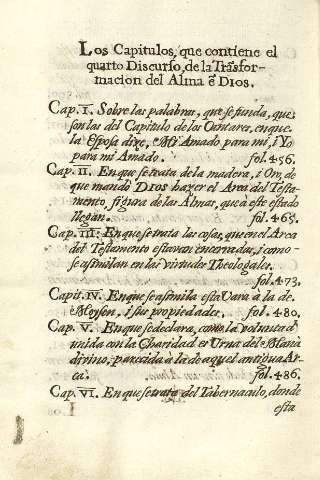 Los Capitulos, que contiene el
quarto Discurso, de la Trãsfor-
macion del Alma ẽ Dios.
Cap. I. Sobre las palabras, que se funda, que
son las del Capitulo de los Cantares, en que
la Esposa dize, Mi Amado para mi, i Yo
para mi Amado. fol. 456.
Cap. II. En que se trata de la madera, i Oro, de
que mandò DIOS hazer el Arca del Testa-
mento, figura de las Almas, que à este estado
llegan. fol. 465.
Cap. III. En que se trata las cosas, que en el Arca
del Testamento estavan encerradas, i como
se asimilan en las virtudes Theologales.
fol. 473.
Capit. IV. En que se asimila esta Vara à la de
Moysen, i sus propiedades. fol. 480.
Cap. V. En que se declara, como la volũtad
vnida con la Charidad es Vrna de el Manà
divino, parecida à la de aquel antigua Ar-
ca. fol. 486.
Cap. VI. En que se trata del Tabernaculo, donde
esta